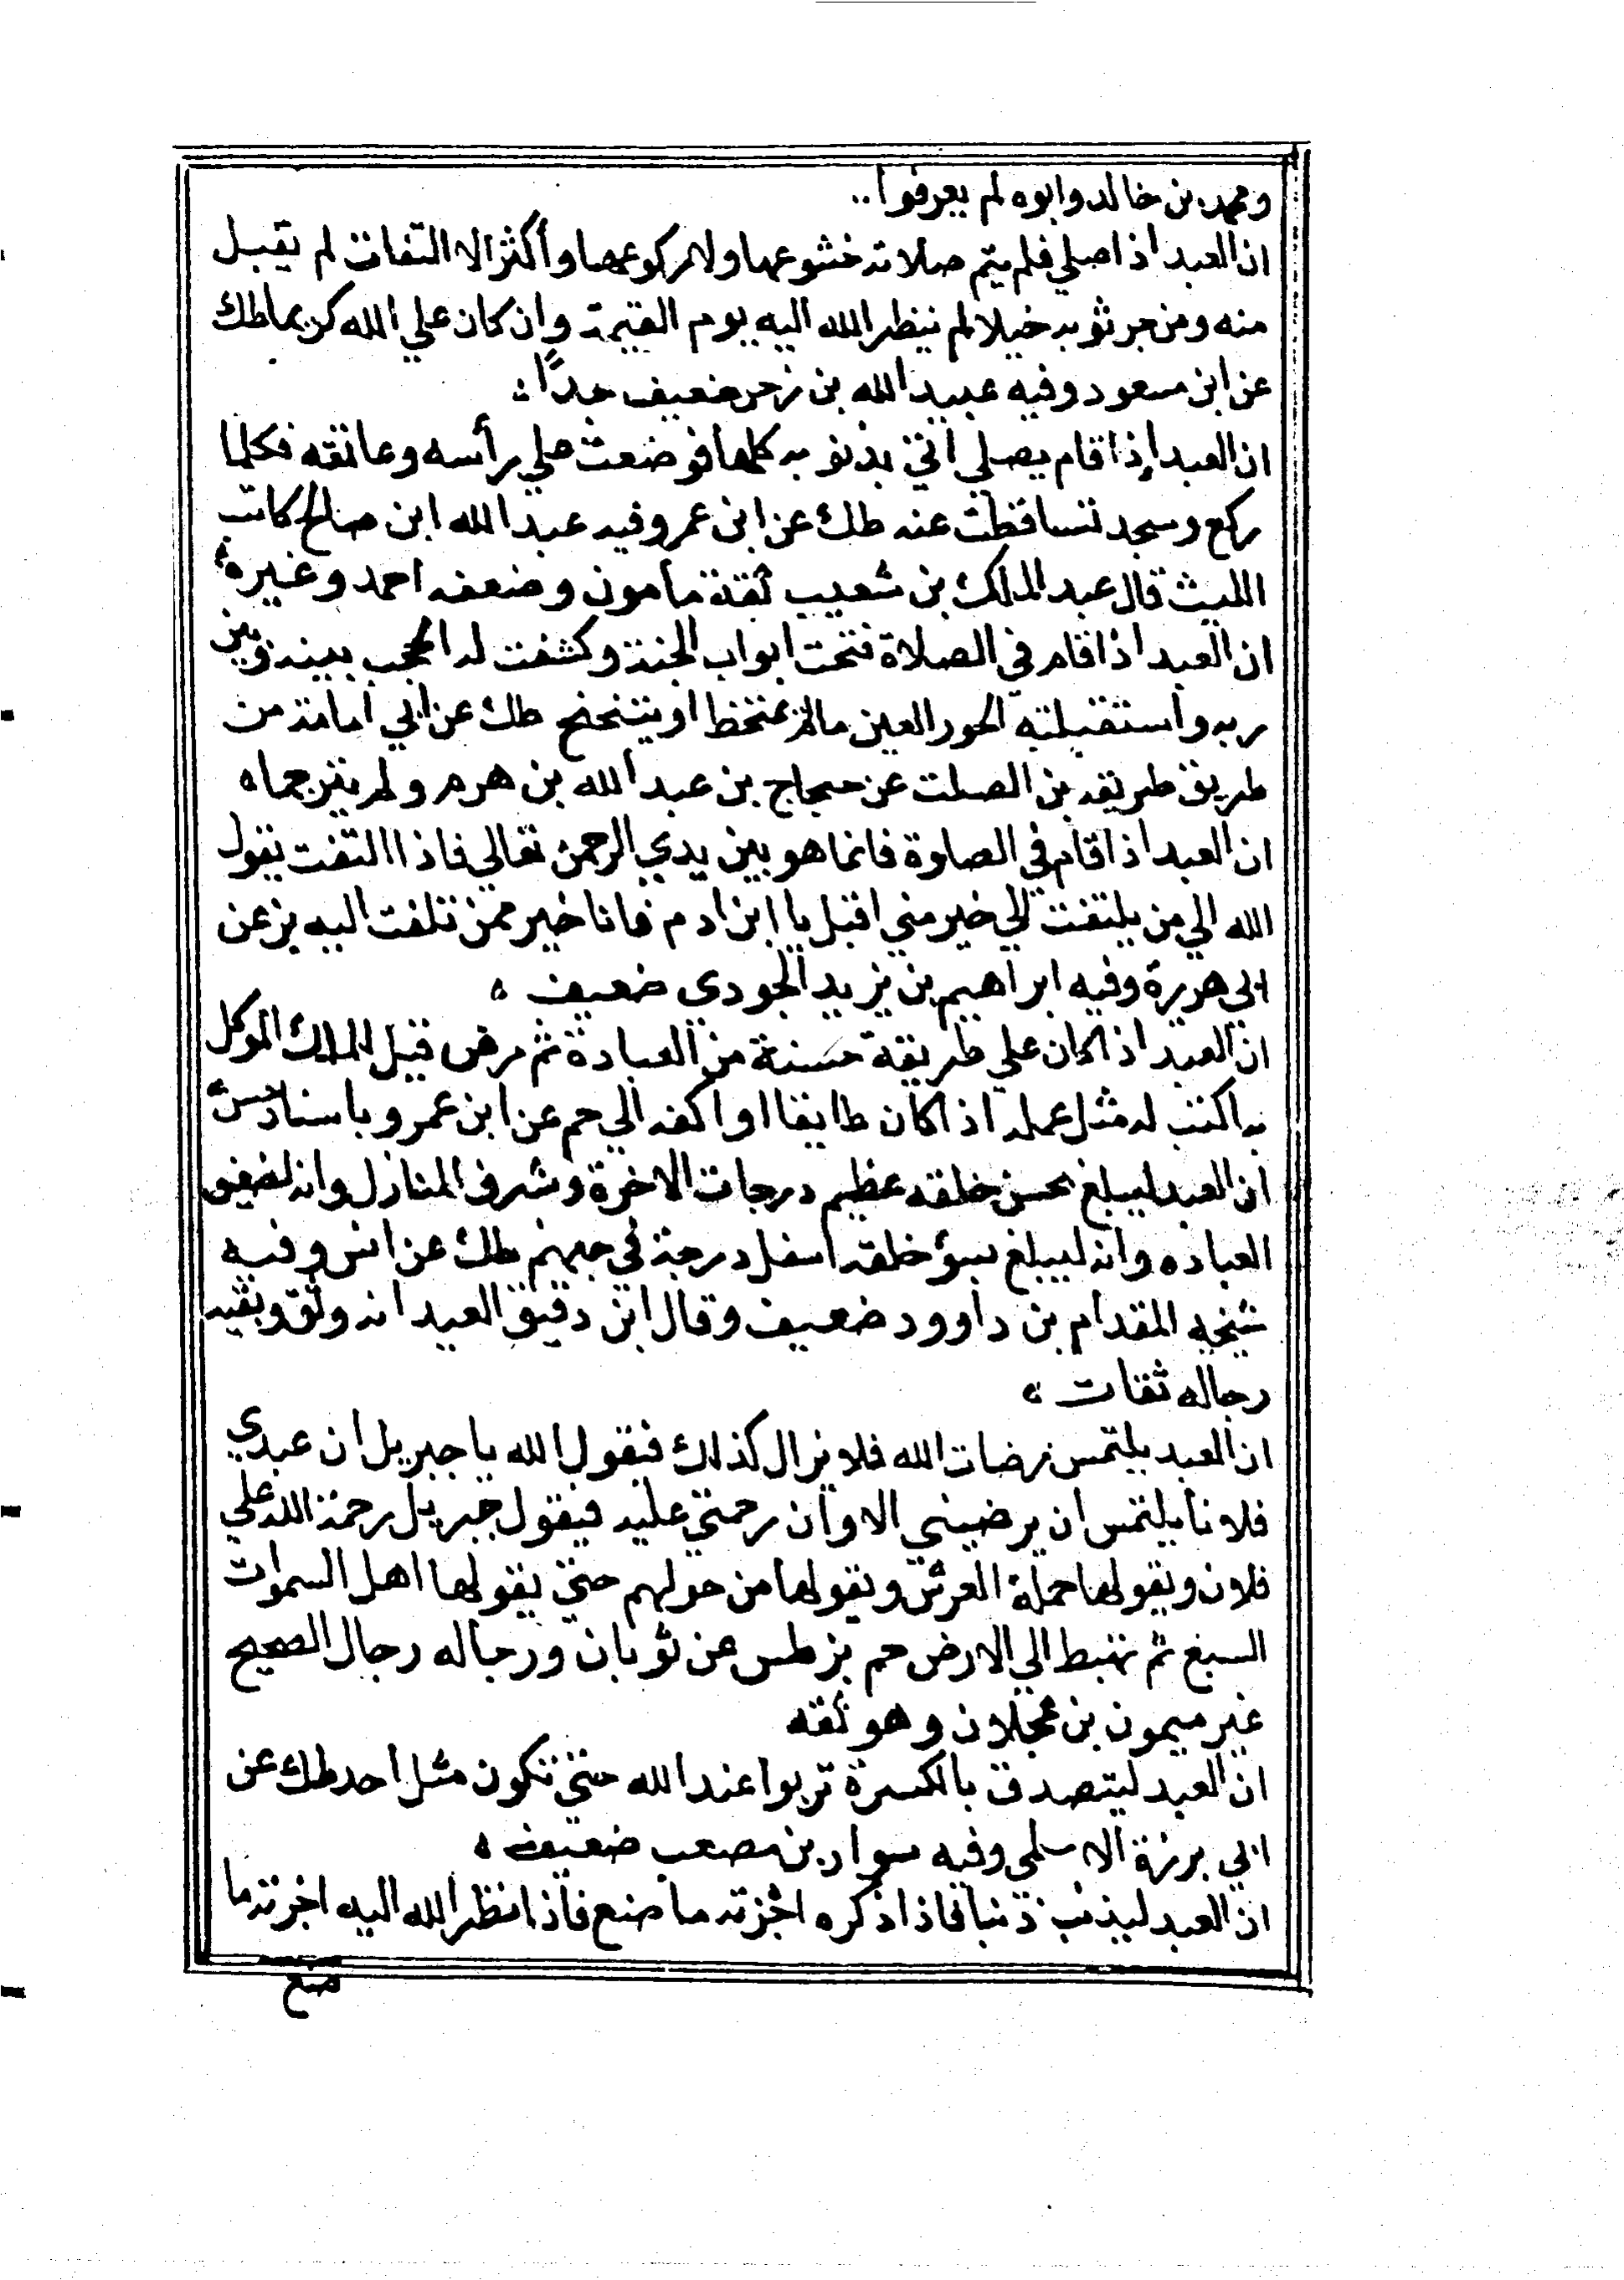 ومحمد بن خالد وابوه لم يعرفوا..
ان العبد اذا صلي فلم يتم صلاته خشوعها ولا ركوعها وأكثر الالتفات لم تقبل
منه ومن جر ثوبه خيلا لم ينظر الله اليه يوم القيمة وان كان علي الله كريما طك
عن ابن مسعود وفيه عبيد الله بن زحر ضعيف جدًا
ان العبد إذا قام يصلي اتي بذنوبه كلها فوضعت علي رأسه وعاتقه فكلما
ركع وسجد تساقطت عنه طك عن ابن عمر وفيه عبد الله ابن صالح كاتب
الليث قال عبد الملك بن شعيب ثقة مأمون وضعفه احمد وغيره
ان العبد اذا قام في الصلاة فتحت ابواب الجنة وكشفت له الحجب بينه وبين
ربه واستقبلته الحور العين مالم يمتخط او يتنحنح طك عن ابي امامة من
طريق طريقه بن الصلت عن حجاج بن عبد الله بن هرم ولم يترجماه
ان العبد اذا قام في الصلوة فانما هو بين يدي الرحمن تعالي فاذا التفت يقول
الله الي من يلتفت الي خير مني اقبل يا ابن ادم فانا خير ممن تلفت اليه بز عن
ابي هريرة وفيه ابراهيم بن يزيد الجودي ضعيف
ان العبد اذا كان علي طريقة حسنة من العبادة ثم مرض قيل للملك الموكل
به اكتب له مثل عمله اذا كان طايقا او اكفه الي حم عن ابن عمرو باسناد حسن
ان العبد ليبلغ بحسن خلقه عظيم درجات الاخرة وشرف المنازل وانه لضعيف
العباده وانه ليبلغ بسؤ خلقه اسفل درجة في جهنم طك عن انس وفيه
شيخه المقدام بن داوود ضعيف وقال ابن دقيق العيد انه وثق وبقيه
رجاله ثقات
ان العبد يلتمس مرضات الله فلا يزال كذلك فيقول الله يا جبريل ان عبدي
فلانا يلتمس ان يرضيني الا وان رحمتي عليه فيقول جبريل رحمة الله علي
فلان ويقولها حملة العرش ويقولها من حولهم حتي يقولها اهل السموات
السبع ثم تهبط الي الارض حم بز طس عن ثوبان ورجاله رجال الصحيح
غير ميمون بن عجلان وهو ثقه
ان العبد ليتصدق بالكسرة تربوا عند الله حتي تكون مثل احد طك عن
ابي برزة الاسلمي وفيه سوار بن مصعب ضعيف
ان العبد ليذنب ذنبا فاذا ذكره احزنه ما صنع فاذا نظر الله اليه احزنه ما
صنع